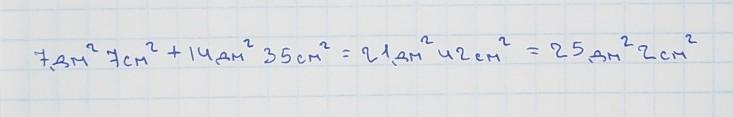 7дм² 7см² + 14дм² 35см² = 21дм² 42см² = 25дм² 2см²